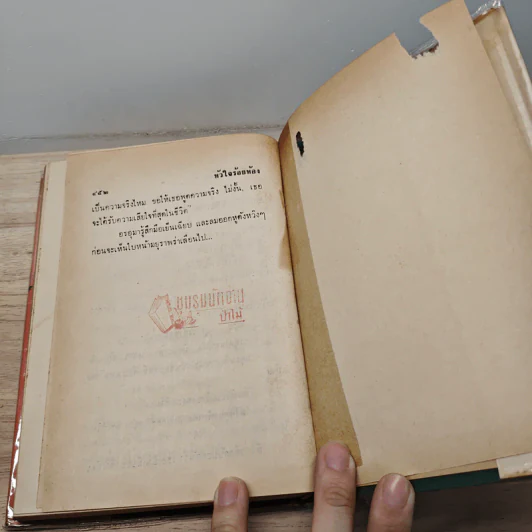 ๔๕๒
หัวใจร้อยห้อง
เป็นความจริงไหม ขอให้เธอพูดความจริง ไม่งั้น, เธอ
จะได้รับความเสียใจที่สุดในชีวิต"
อรอุมารู้สึกมือเย็นเฉียบ และลมออกหูดังหวิงๆ
ก่อนจะเห็นใบหน้ามยุราพร่าเลือนไป...
ชมรมนักอ่าน
ป่าโม้